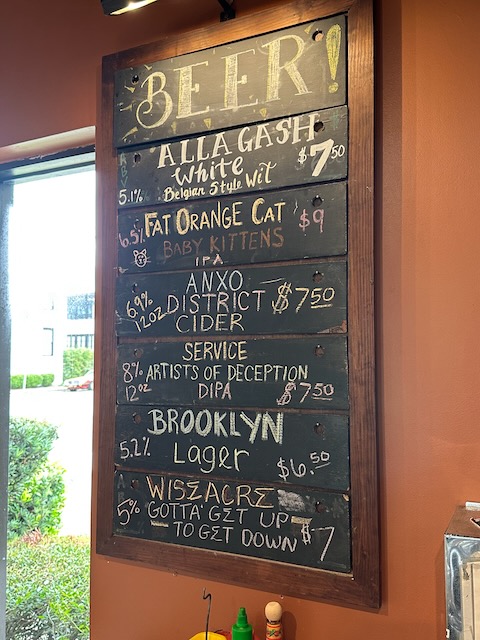 BEER!
ALLAGASH
White
Belgian Style Wit
$7.50
ABV
5.1%
FAT ORANGE CAT $9
6.5%
BABY KITTENS
IPA
ANXO
6.9% DISTRICT $7.50
12oz CIDER
SERVICE
8% ARTISTS OF DECEPTION
12oz DIPA $7.50
BROOKLYN
5.2% Lager
$6.50
WISEACRE
5% GOTTA' GET UP
TO GET DOWN $7